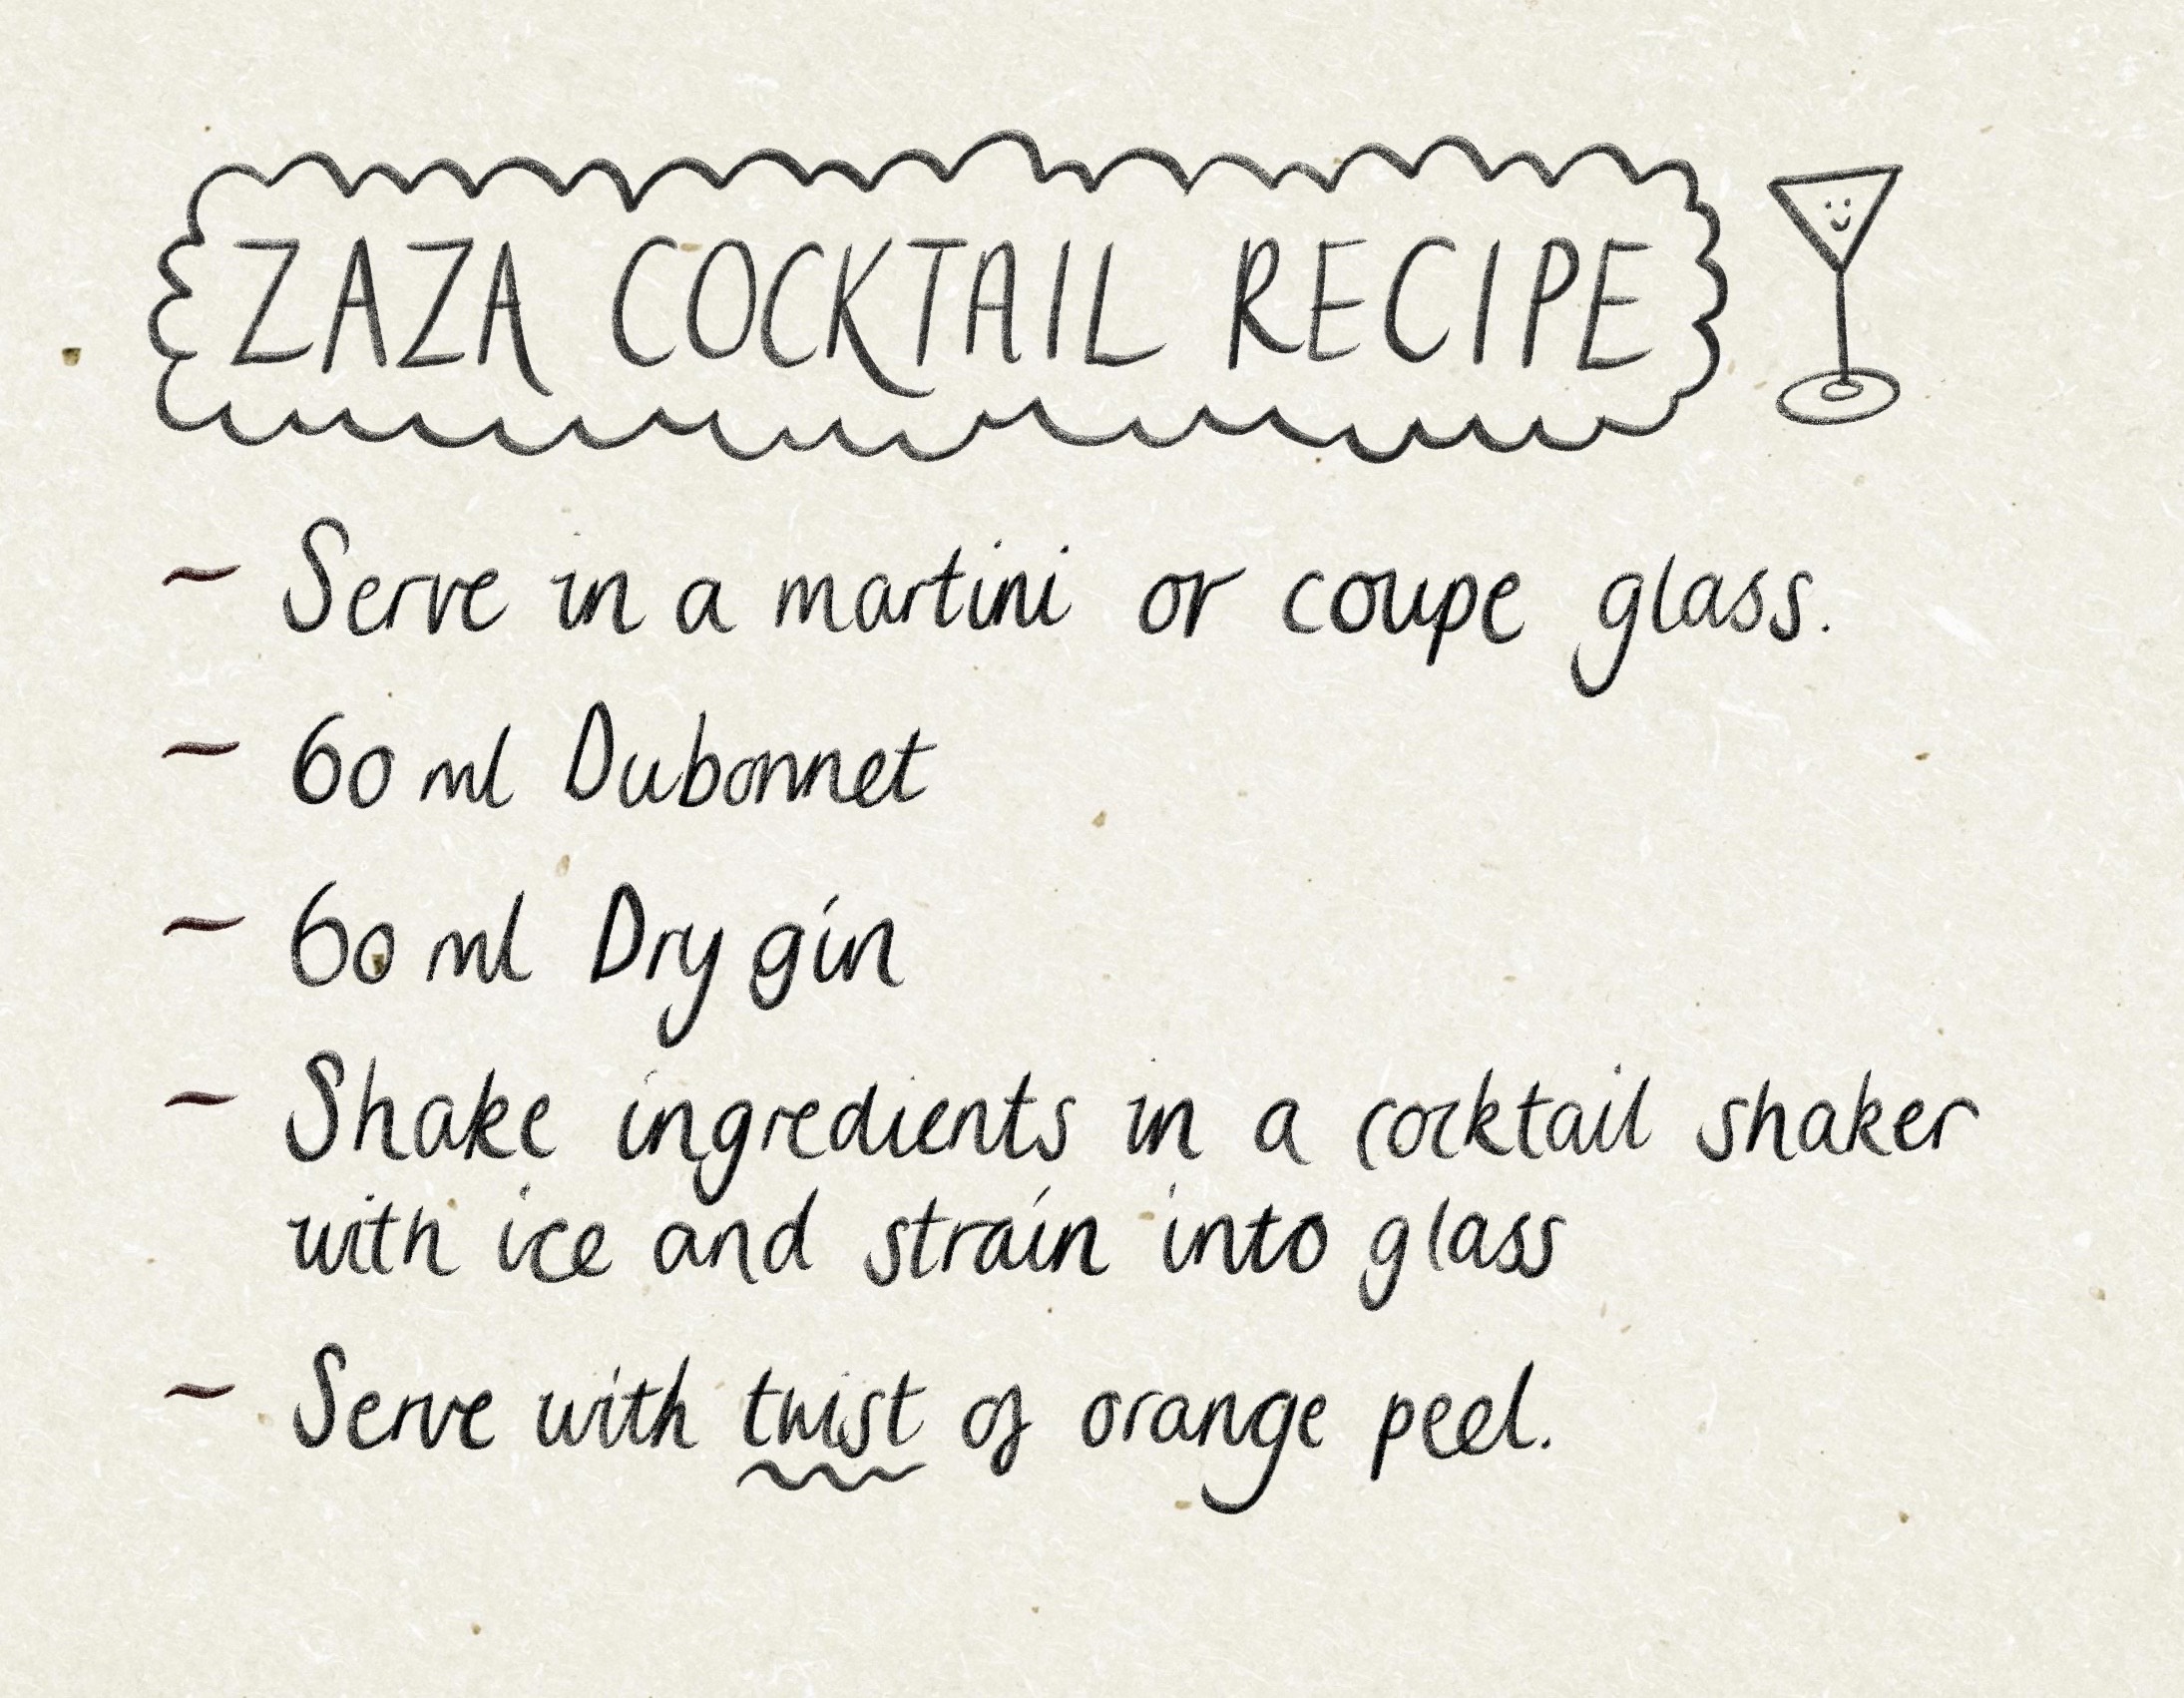 ZAZA COCKTAIL RECIPE
~ Serve in a martini or coupe glass.
~ 60 ml Dubonnet
~ 60 ml Dry gin
~ Shake ingredients in a cocktail shaker
with ice and strain into glass
~ Serve with twist of orange peel.